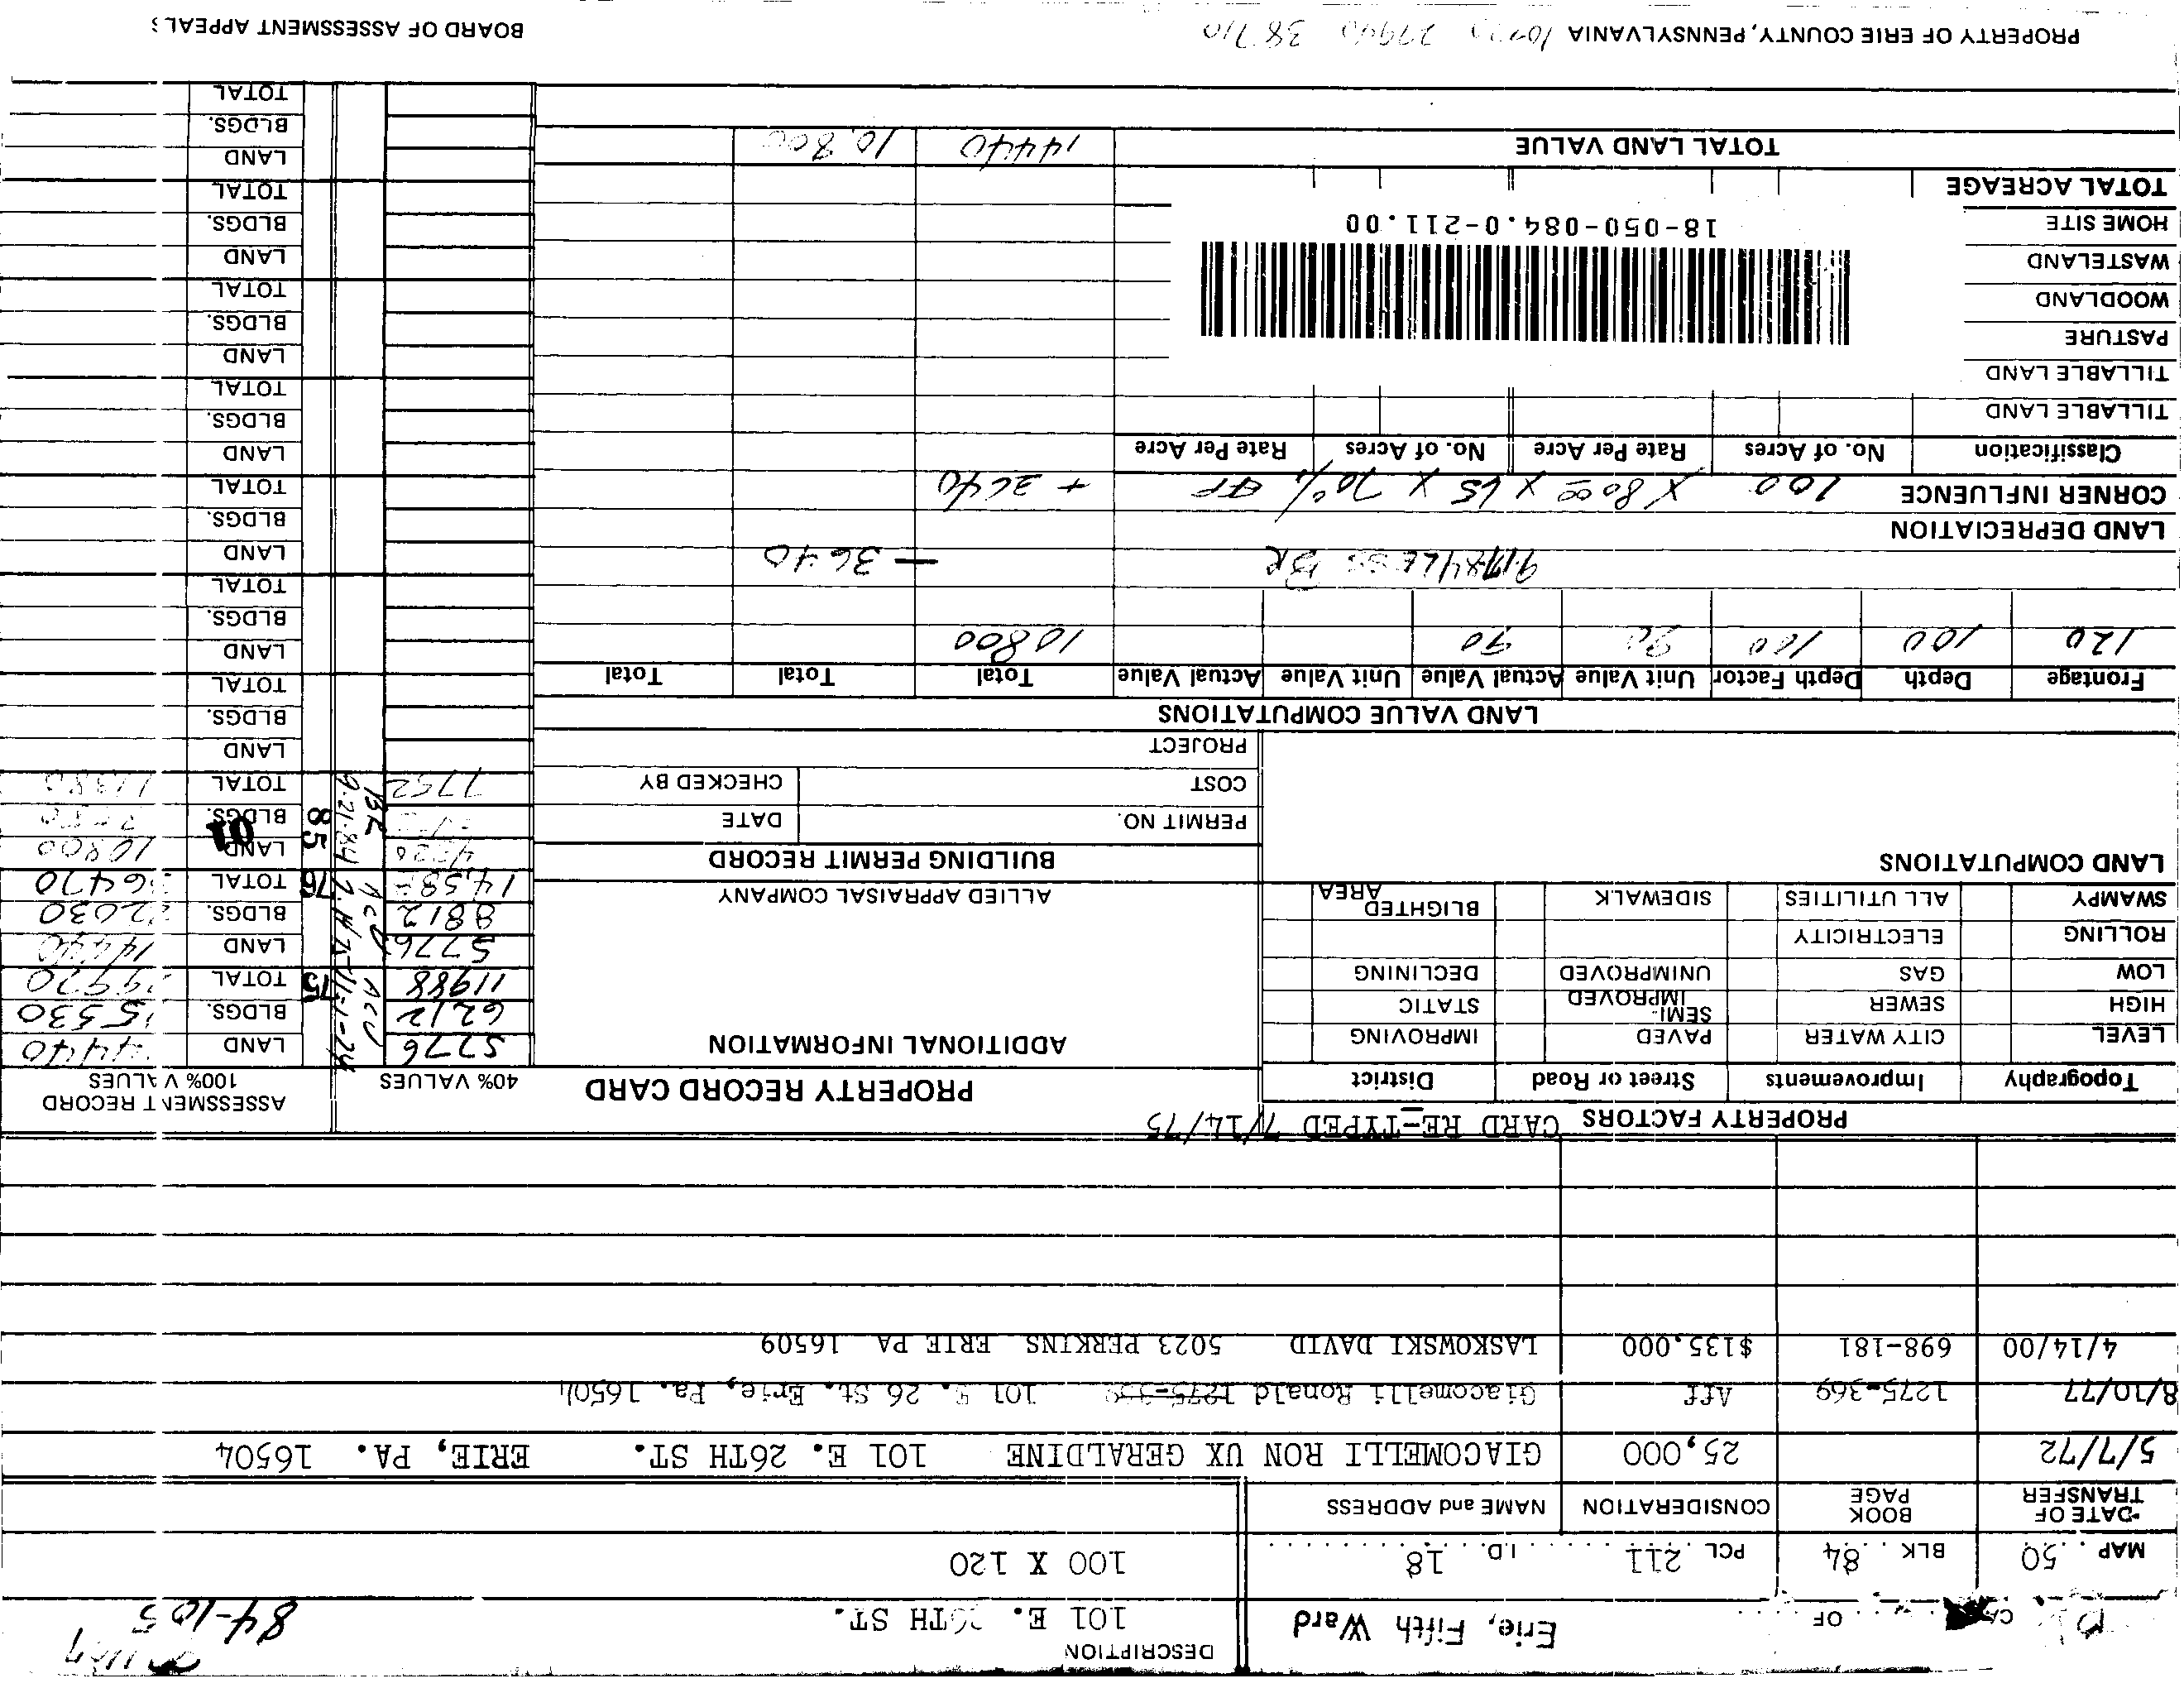 DESCRIPTION
OF
Erie, Fifth Ward
101 E. 26TH ST.
84-105
MAP 50 BLK 84 PCL 211 I.D. 18
100 X 120
DATE OF TRANSFER BOOK PAGE CONSIDERATION NAME and ADDRESS
5/7/72 25,000 GIACOMELLI RON UX GERALDINE 101 E. 26TH ST. ERIE, PA. 16504
8/10/77 1275-369 Aff Giacomelli Ronald 101 E. 26 St. Erie, Pa. 16504
4/14/00 698-181 $135,000 LASKOWSKI DAVID 5023 PERKINS ERIE PA 16509
PROPERTY FACTORS CARD RE-TYPED 7/14/75
Topography Improvements Street or Road District
LEVEL CITY WATER PAVED IMPROVING
HIGH SEWER SEMI-IMPROVED STATIC
LOW GAS UNIMPROVED DECLINING
ROLLING ELECTRICITY
SWAMPY ALL UTILITIES SIDEWALK BLIGHTED AREA
LAND COMPUTATIONS
PROPERTY RECORD CARD
ADDITIONAL INFORMATION
ALLIED APPRAISAL COMPANY
BUILDING PERMIT RECORD
PERMIT NO. DATE
COST CHECKED BY
PROJECT
40% VALUES ASSESSMENT RECORD 100% VALUES
5776 LAND 14440
6212 BLDGS. 15530
11988 75 TOTAL 29970
5776 LAND 14440
8812 BLDGS. 22030
14,588 76 TOTAL 36470
85 LAND 10800
01 BLDGS.
7752 9-21-84 BR TOTAL
LAND
BLDGS.
TOTAL
LAND
BLDGS.
TOTAL
LAND
BLDGS.
TOTAL
LAND
BLDGS.
TOTAL
LAND
BLDGS.
TOTAL
LAND
BLDGS.
TOTAL
LAND
BLDGS.
TOTAL
LAND
BLDGS.
TOTAL
LAND VALUE COMPUTATIONS
Frontage Depth Depth Factor Unit Value Actual Value Unit Value Actual Value Total Total Total
120 100 100 90 90 10800
BR - 3640
LAND DEPRECIATION
CORNER INFLUENCE 100 X 80.00 X 65 X 70% EFF + 3640
Classification No. of Acres Rate Per Acre No. of Acres Rate Per Acre
TILLABLE LAND
TILLABLE LAND
PASTURE
WOODLAND
WASTELAND
HOME SITE
18-050-084.0-211.00
TOTAL ACREAGE
TOTAL LAND VALUE 14440 10,800
PROPERTY OF ERIE COUNTY, PENNSYLVANIA 27940 38710
BOARD OF ASSESSMENT APPEALS